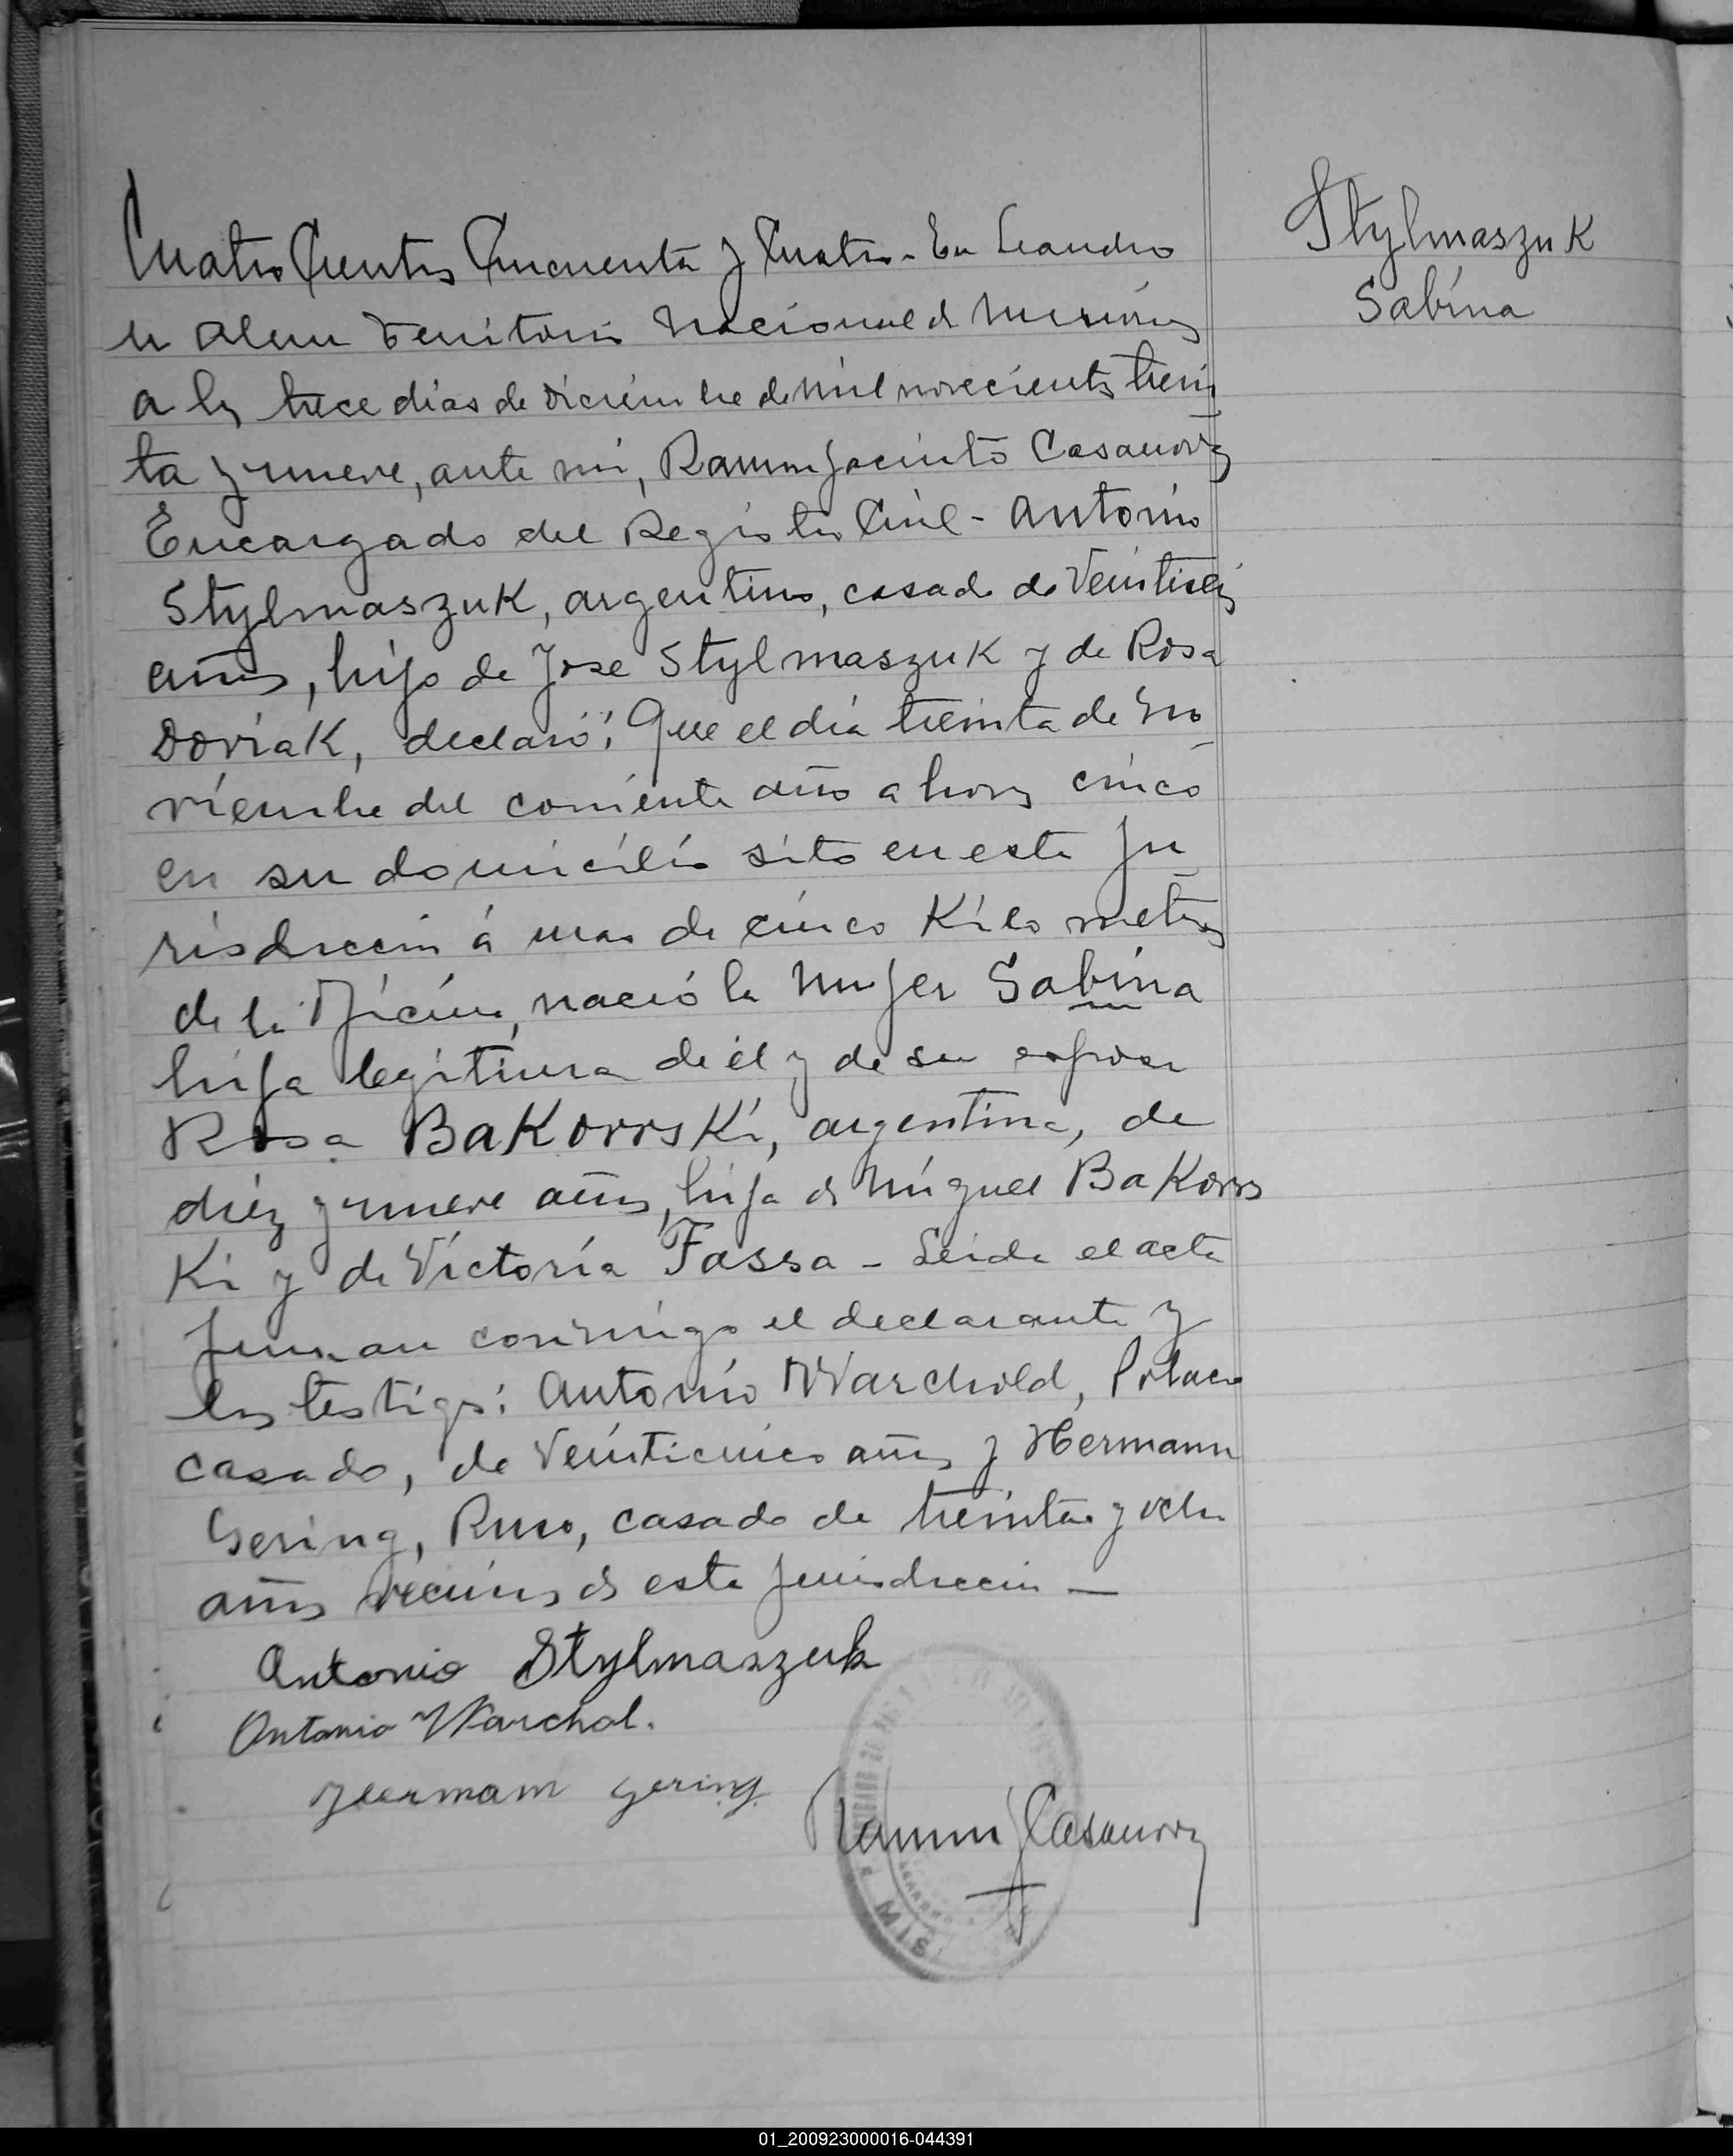 Stylmaszuk
Sabina
Cuatro Cientos Cincuenta y Cuatro - En Leandro
N Alem Territorio Nacional de Misiones
a los trece dias de Diciembre de mil novecientos trein
ta y nueve, ante mi, Ramon Jacinto Casanova
Encargado del Registro Civil - Antonio
Stylmaszuk, argentino, casado de Veintiseis
años, hijo de Jose Stylmaszuk y de Rosa
Dovrak, declaró: Que el dia treinta de No
viembre del corriente año a horas cinco
en su domicilio sito en esta Ju
risdiccion á mas de cinco Kilo metros
de la Oficina, nació la mujer Sabina
hija legitima de él y de su esposa
Rosa BaKovvsKi, argentina, de
diez y nueve años, hija de Miguel BaKovvs
Ki y de Victoria Fassa - Leida el acta
firman conmigo el declarante y
los testigos: Antonio Warchold, Polaco
casado, de Veinticinco años y Hermann
Gering, Ruso, casado de treinta y ocho
años vecinos de esta jurisdiccion -
Antonio Stylmaszuk
Antonio Warchol.
Hermam Gering
Ramon J Casanova
MIS
01_200923000016-044391